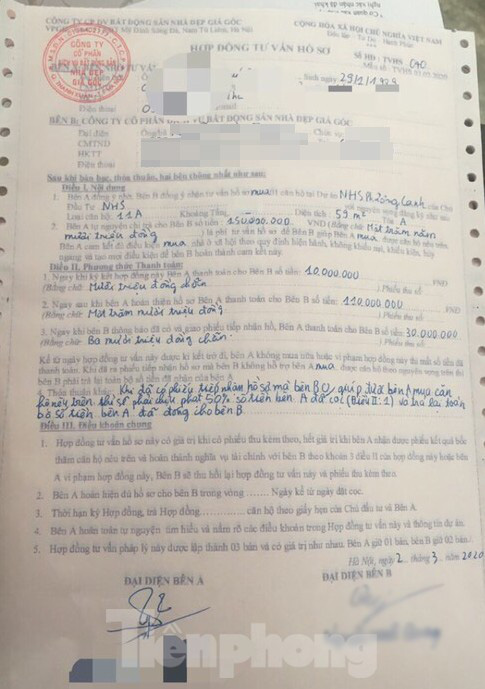 CÔNG TY CP DV BẤT ĐỘNG SẢN NHÀ ĐẸP GIÁ GỐC
CỘNG HÒA XÃ HỘI CHỦ NGHĨA VIỆT NAM
Độc lập - Tự Do - Hạnh Phúc
HỢP ĐỒNG TƯ VẤN HỒ SƠ
Số HĐ: TVHS 040
CÔNG TY
CỔ PHẦN
DỊCH VỤ BẤT ĐỘNG SẢN
NHÀ ĐẸP
GIÁ GỐC
BÊN A:
Sinh ngày
Điện thoại
BÊN B: CÔNG TY CỔ PHẦN DỊCH VỤ BẤT ĐỘNG SẢN NHÀ ĐẸP GIÁ GỐC
Đại diện
CMTND
HKTT
Điện thoại
Sau khi bàn bạc, thỏa thuận, hai bên thống nhất như sau:
Điều I. Nội dung
1. Bên A đồng ý nhờ, Bên B đồng ý nhận tư vấn hồ sơ mua 01 căn hộ tại Dự án NHS Phương Canh của Chủ
Đầu Tư NHS
Loại căn hộ: 11A Khoảng Tầng Diện tích: 59 m² Tên A
2. Bên A tự nguyện chi trả cho Bên B số tiền: 150.000.000 VNĐ (Bằng chữ: Một trăm năm
mươi triệu đồng) là phí tư vấn hồ sơ để Bên B giúp Bên A mua được căn hộ nêu trên.
Bên A cam kết đủ điều kiện mua nhà ở xã hội theo quy định hiện hành, không khiếu nại, khiếu kiện, hủy
ngang và tạo mọi điều kiện để bên B hoàn thành cam kết này.
Điều II. Phương thức Thanh toán:
1. Ngay khi ký kết hợp đồng này Bên A thanh toán cho Bên B số tiền: 10.000.000 VNĐ
(Bằng chữ: Mười triệu đồng chẵn) Phiếu thu số
2. Ngay sau khi bên A hoàn thiện hồ sơ Bên A thanh toán cho Bên B số tiền: 110.000.000 VNĐ
(Bằng chữ: Một trăm mười triệu đồng) Phiếu thu số
3. Ngay khi bên B thông báo đã có và giao phiếu tiếp nhận hồ sơ, Bên A thanh toán cho Bên B số tiền: 30.000.000
(Bằng chữ: Ba mươi triệu đồng chẵn.) Phiếu thu số
Kể từ ngày hợp đồng tư vấn này được kí kết trở đi, bên A không mua nữa hoặc vi phạm hợp đồng này thì mất số tiền đã
thanh toán. Khi đã ra phiếu tiếp nhận hồ sơ mà bên B không hỗ trợ bên A mua được căn hộ theo nguyện vọng trên thì
bên B phải trả lại toàn bộ số tiền đã nhận của bên A
4. Thỏa thuận khác: Khi đã có phiếu tiếp nhận hồ sơ mà bên B 0 giúp được bên A mua căn
hộ nêu trên, thì sẽ phải chịu phạt 50% số tiền bên A đã cọc (Điều II: 1) và trả lại toàn
bộ số tiền bên A đã đóng cho bên B.
Điều III. Điều khoản chung
1. Hợp đồng tư vấn hồ sơ này có giá trị khi có phiếu thu kèm theo, hết giá trị khi bên A nhận được phiếu kết quả bốc
thăm căn hộ nêu trên và hoàn thành nghĩa vụ tài chính với bên B theo khoản 3 điều II của hợp đồng này hoặc bên
A vi phạm hợp đồng này, Bên B sẽ thu hồi lại hợp đồng tư vấn này và phiếu thu kèm theo.
2. Bên A hoàn thiện đủ hồ sơ cho bên B trong vòng ......... Ngày kể từ ngày đặt cọc.
3. Thời hạn ký Hợp đồng, trả Hợp đồng............ căn hộ theo giấy hẹn của Chủ đầu tư và Bên A.
4. Bên A hoàn toàn tự nguyện tìm hiểu và nắm rõ các điều khoản trong Hợp đồng tư vấn này và thông tin dự án.
5. Hợp đồng tư vấn pháp lý này được lập thành 03 bản và có giá trị như nhau. Bên A giữ 01 bản, bên B giữ 02 bản./.
Hà Nội, ngày 2 tháng 3 năm 2020
ĐẠI DIỆN BÊN A
ĐẠI DIỆN BÊN B
Tiền phong